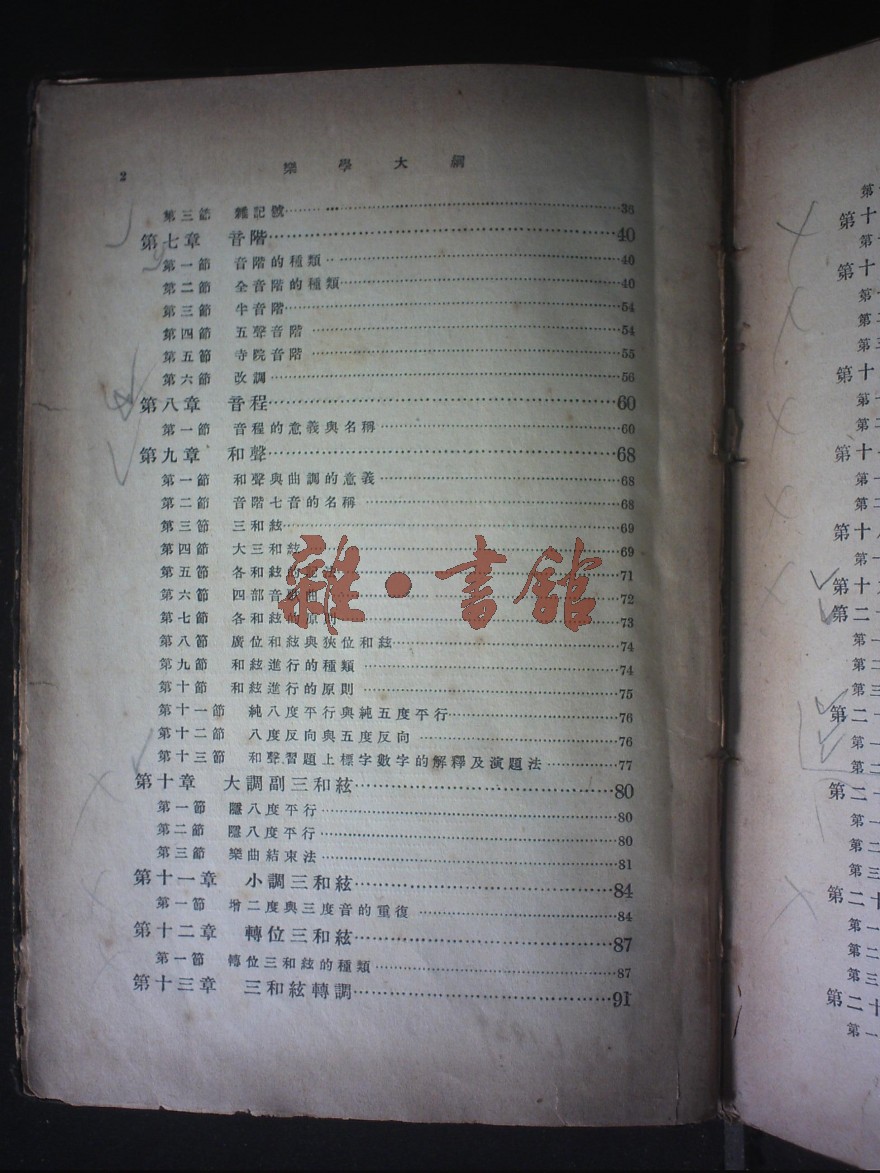 2
樂學大綱
第三節 雜記號 38
第七章 音階 40
第一節 音階的種類 40
第二節 全音階的種類 40
第三節 半音階 54
第四節 五聲音階 54
第五節 寺院音階 55
第六節 改調 56
第八章 音程 60
第一節 音程的意義與名稱 60
第九章 和聲 68
第一節 和聲與曲調的意義 68
第二節 音階七音的名稱 68
第三節 三和絃 69
第四節 大三和絃 69
第五節 各和絃的記法 71
第六節 四部音歌曲 72
第七節 各和絃的原則 73
第八節 廣位和絃與狹位和絃 74
第九節 和絃進行的種類 74
第十節 和絃進行的原則 75
第十一節 純八度平行與純五度平行 76
第十二節 八度反向與五度反向 76
第十三節 和聲習題上標字數字的解釋及演題法 77
第十章 大調副三和絃 80
第一節 隱八度平行 80
第二節 隱八度平行 80
第三節 樂曲結束法 81
第十一章 小調三和絃 84
第一節 增二度與三度音的重復 84
第十二章 轉位三和絃 87
第一節 轉位三和絃的種類 87
第十三章 三和絃轉調 91
雜·書館
第十
第十
第一
第二
第三
第十
第一
第二
第十
第一
第二
第十八
第一
第十九
第二十
第一
第二
第三
第二十
第一
第二
第二十
第一
第二
第三
第二十
第一
第二
第三
第二十
第一